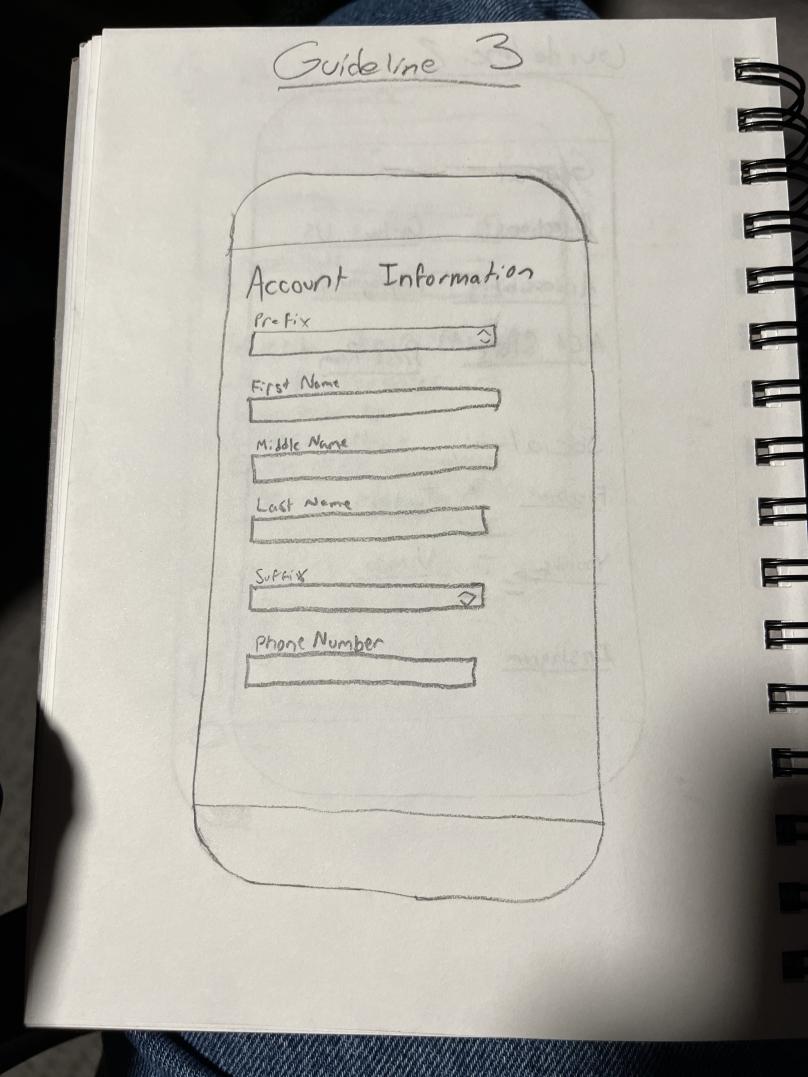 Guideline 3
Account Information
Prefix
First Name
Middle Name
Last Name
Suffix
Phone Number